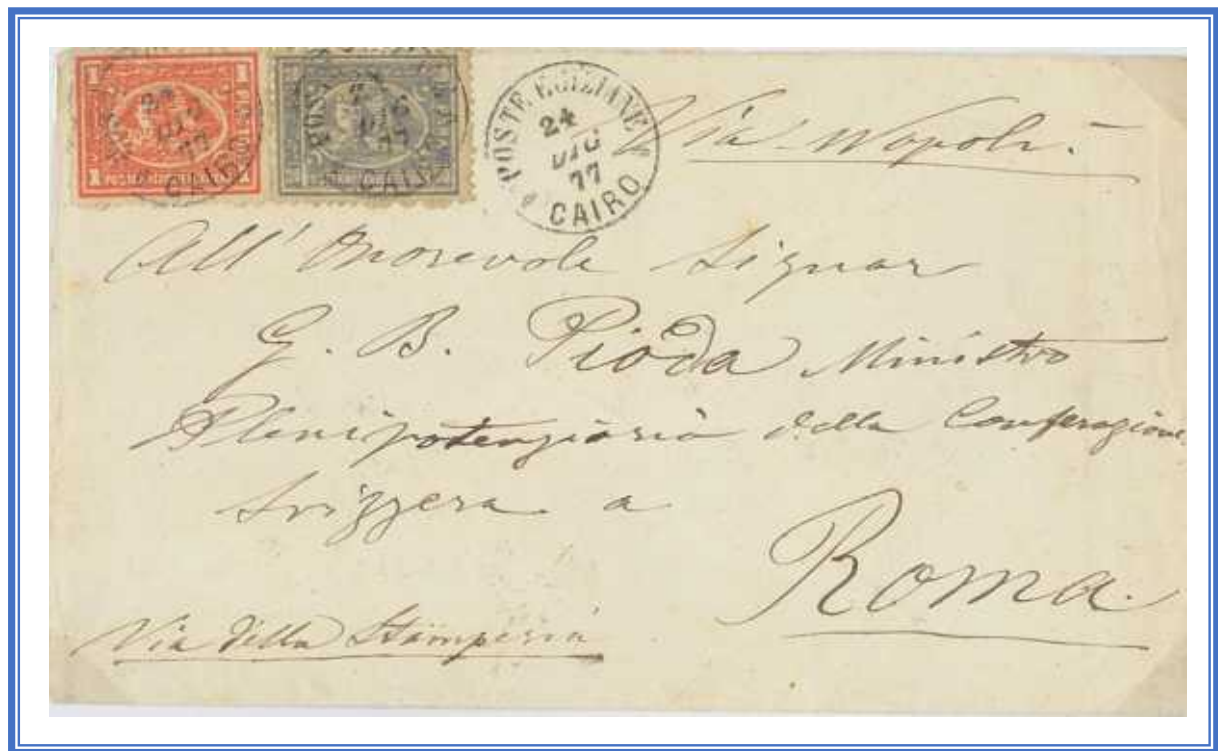 1 1
1 1
24
DIC
77
CAIRO
24
DIC
77
CAIRO
POSTE EGIZIANE
24
DIC
77
CAIRO
Via Napoli
All' Onorevole Signor
G. B. Pioda Ministro
Plenipotenziario della Confederazione
Svizzera a
Roma
Via della Stamperia